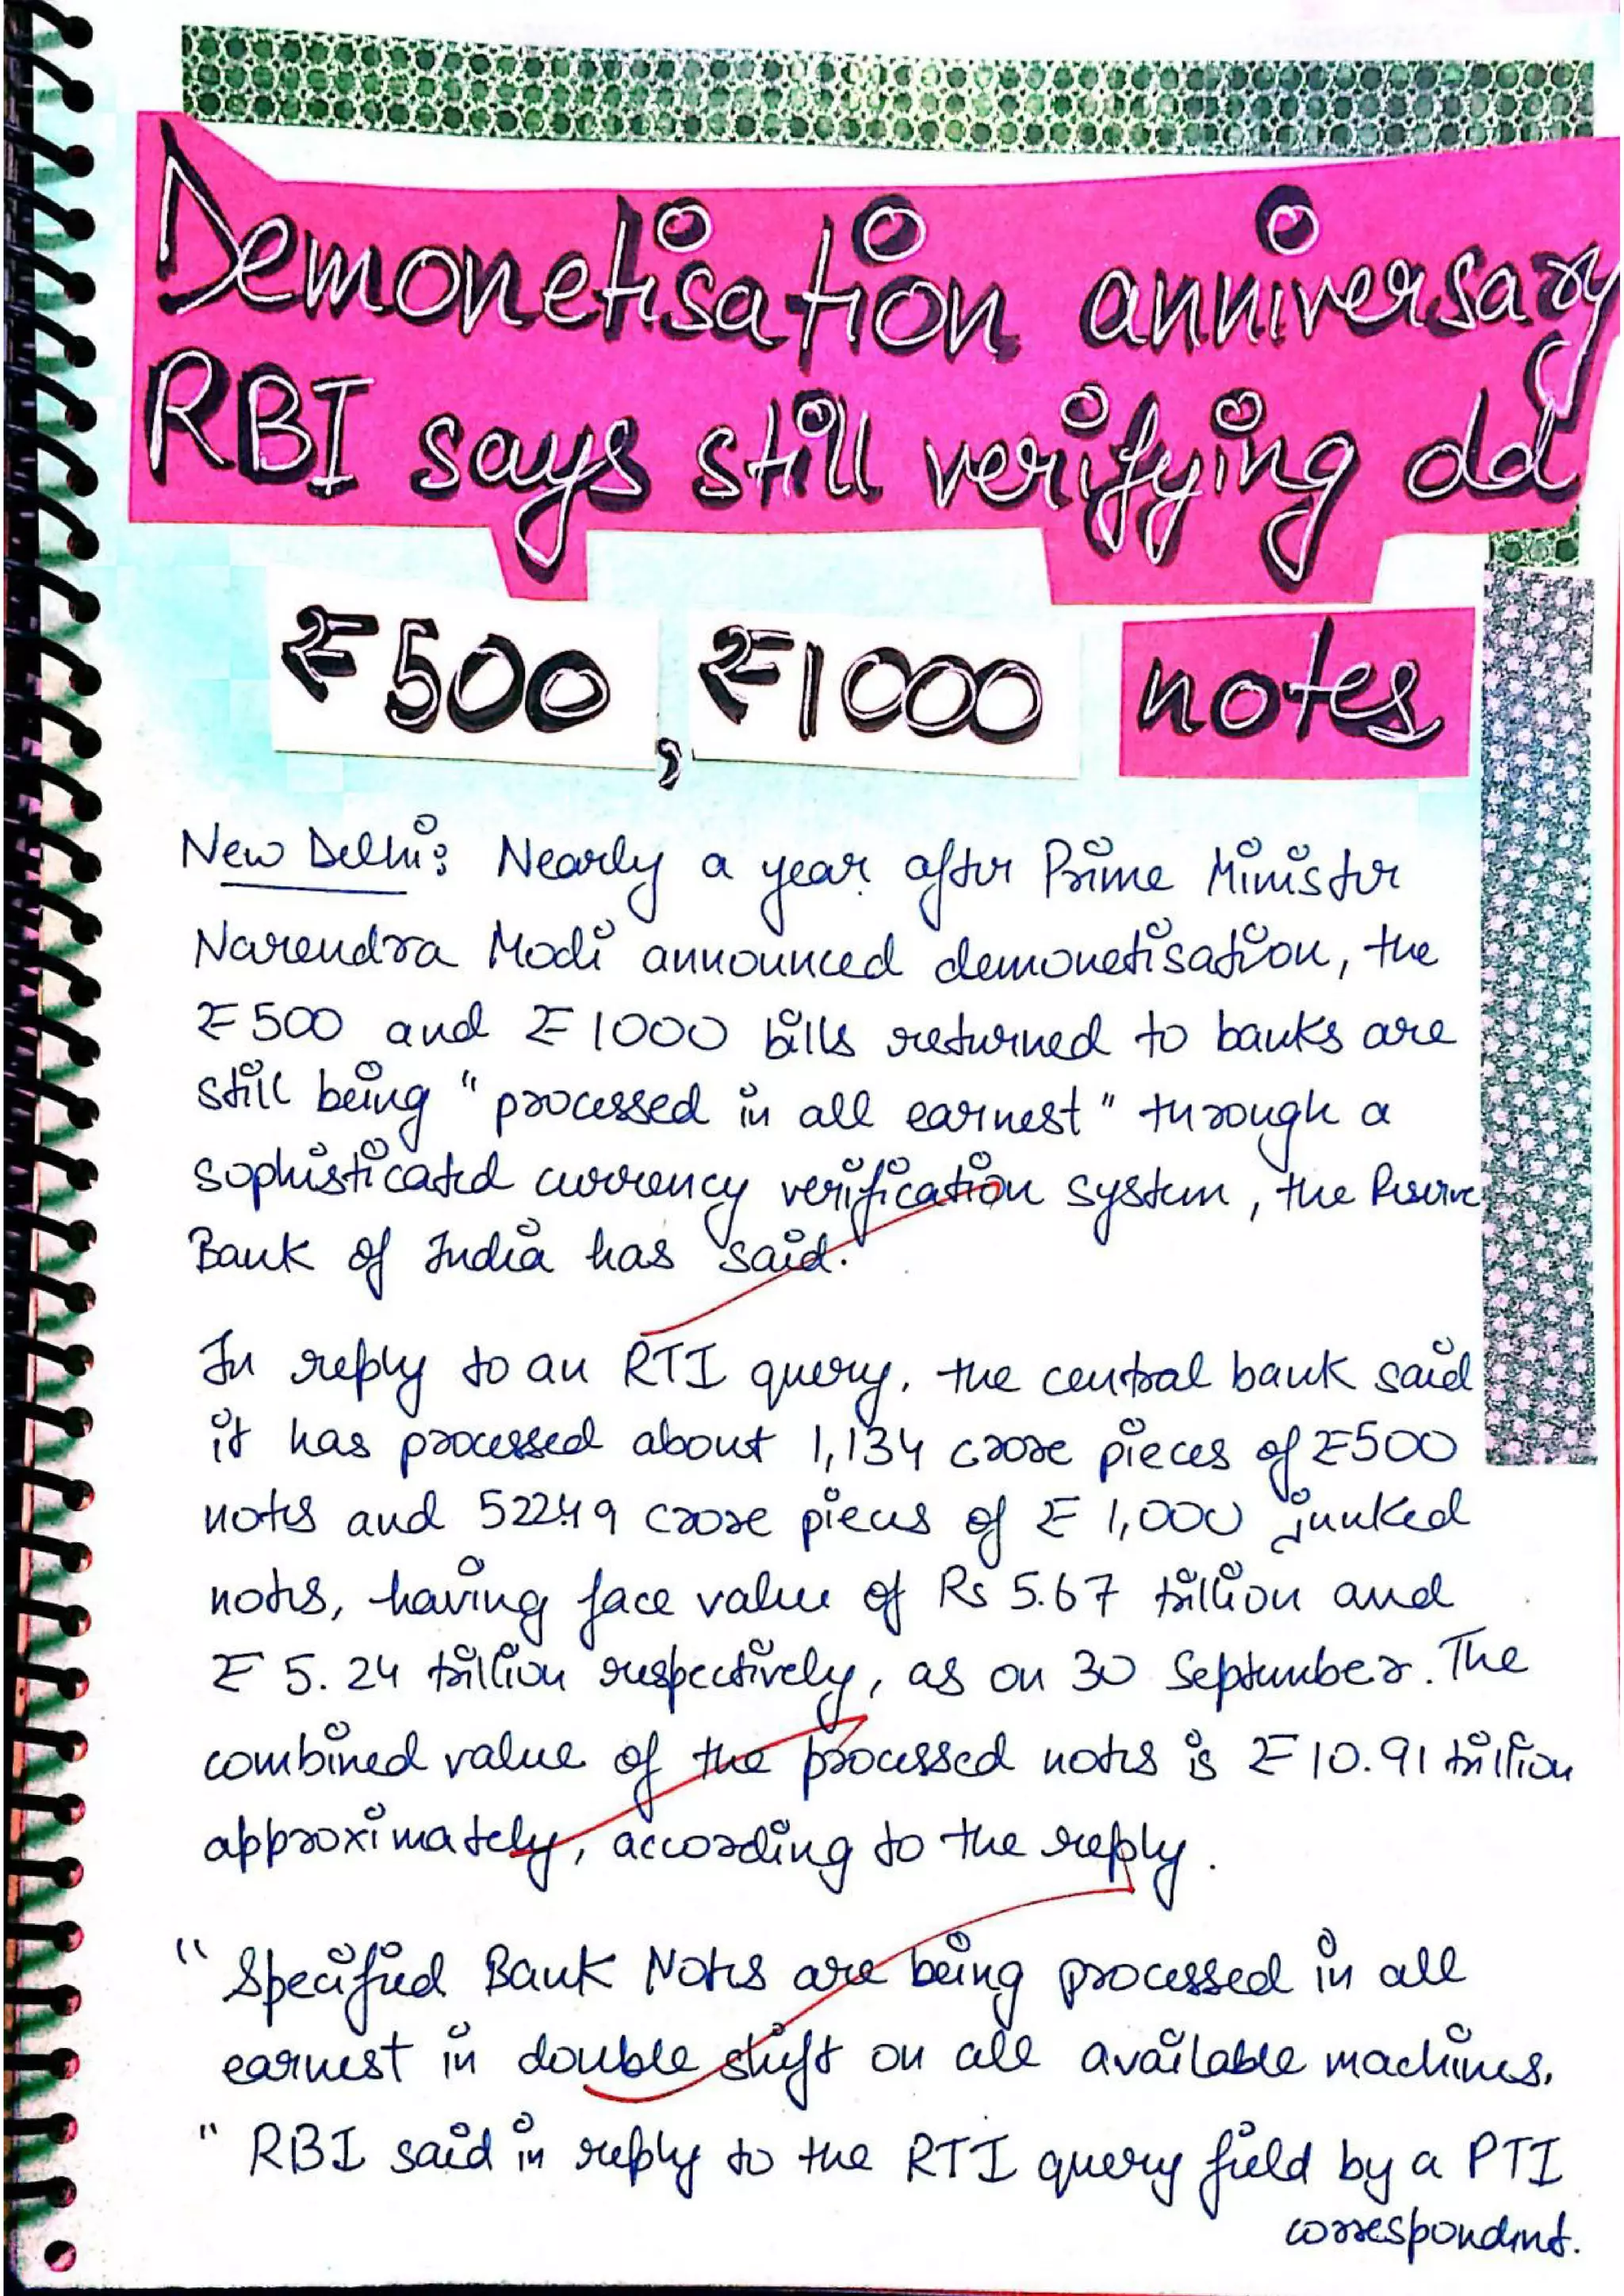 Demonetisation anniversary
RBI says still verifying old
₹500, ₹1000 notes
New Delhi: Nearly a year after Prime Minister
Narendra Modi announced demonetisation, the
₹500 and ₹1000 bills returned to banks are
still being "processed in all earnest" through a
sophisticated currency verification system, the Reserve
Bank of India has said.
In reply to an RTI query, the central bank said
it has processed about 1,134 crore pieces of ₹500
notes and 522449 crore pieces of ₹1,000 junked
notes, having face value of Rs 5.67 trillion and
₹5.24 trillion respectively, as on 30 September. The
combined value of the processed notes is ₹10.91 trillion
approximately, according to the reply.
"Specified Bank Notes are being processed in all
earnest in double shift on all available machines.
" RBI said in reply to the RTI query field by a PTI
correspondent.